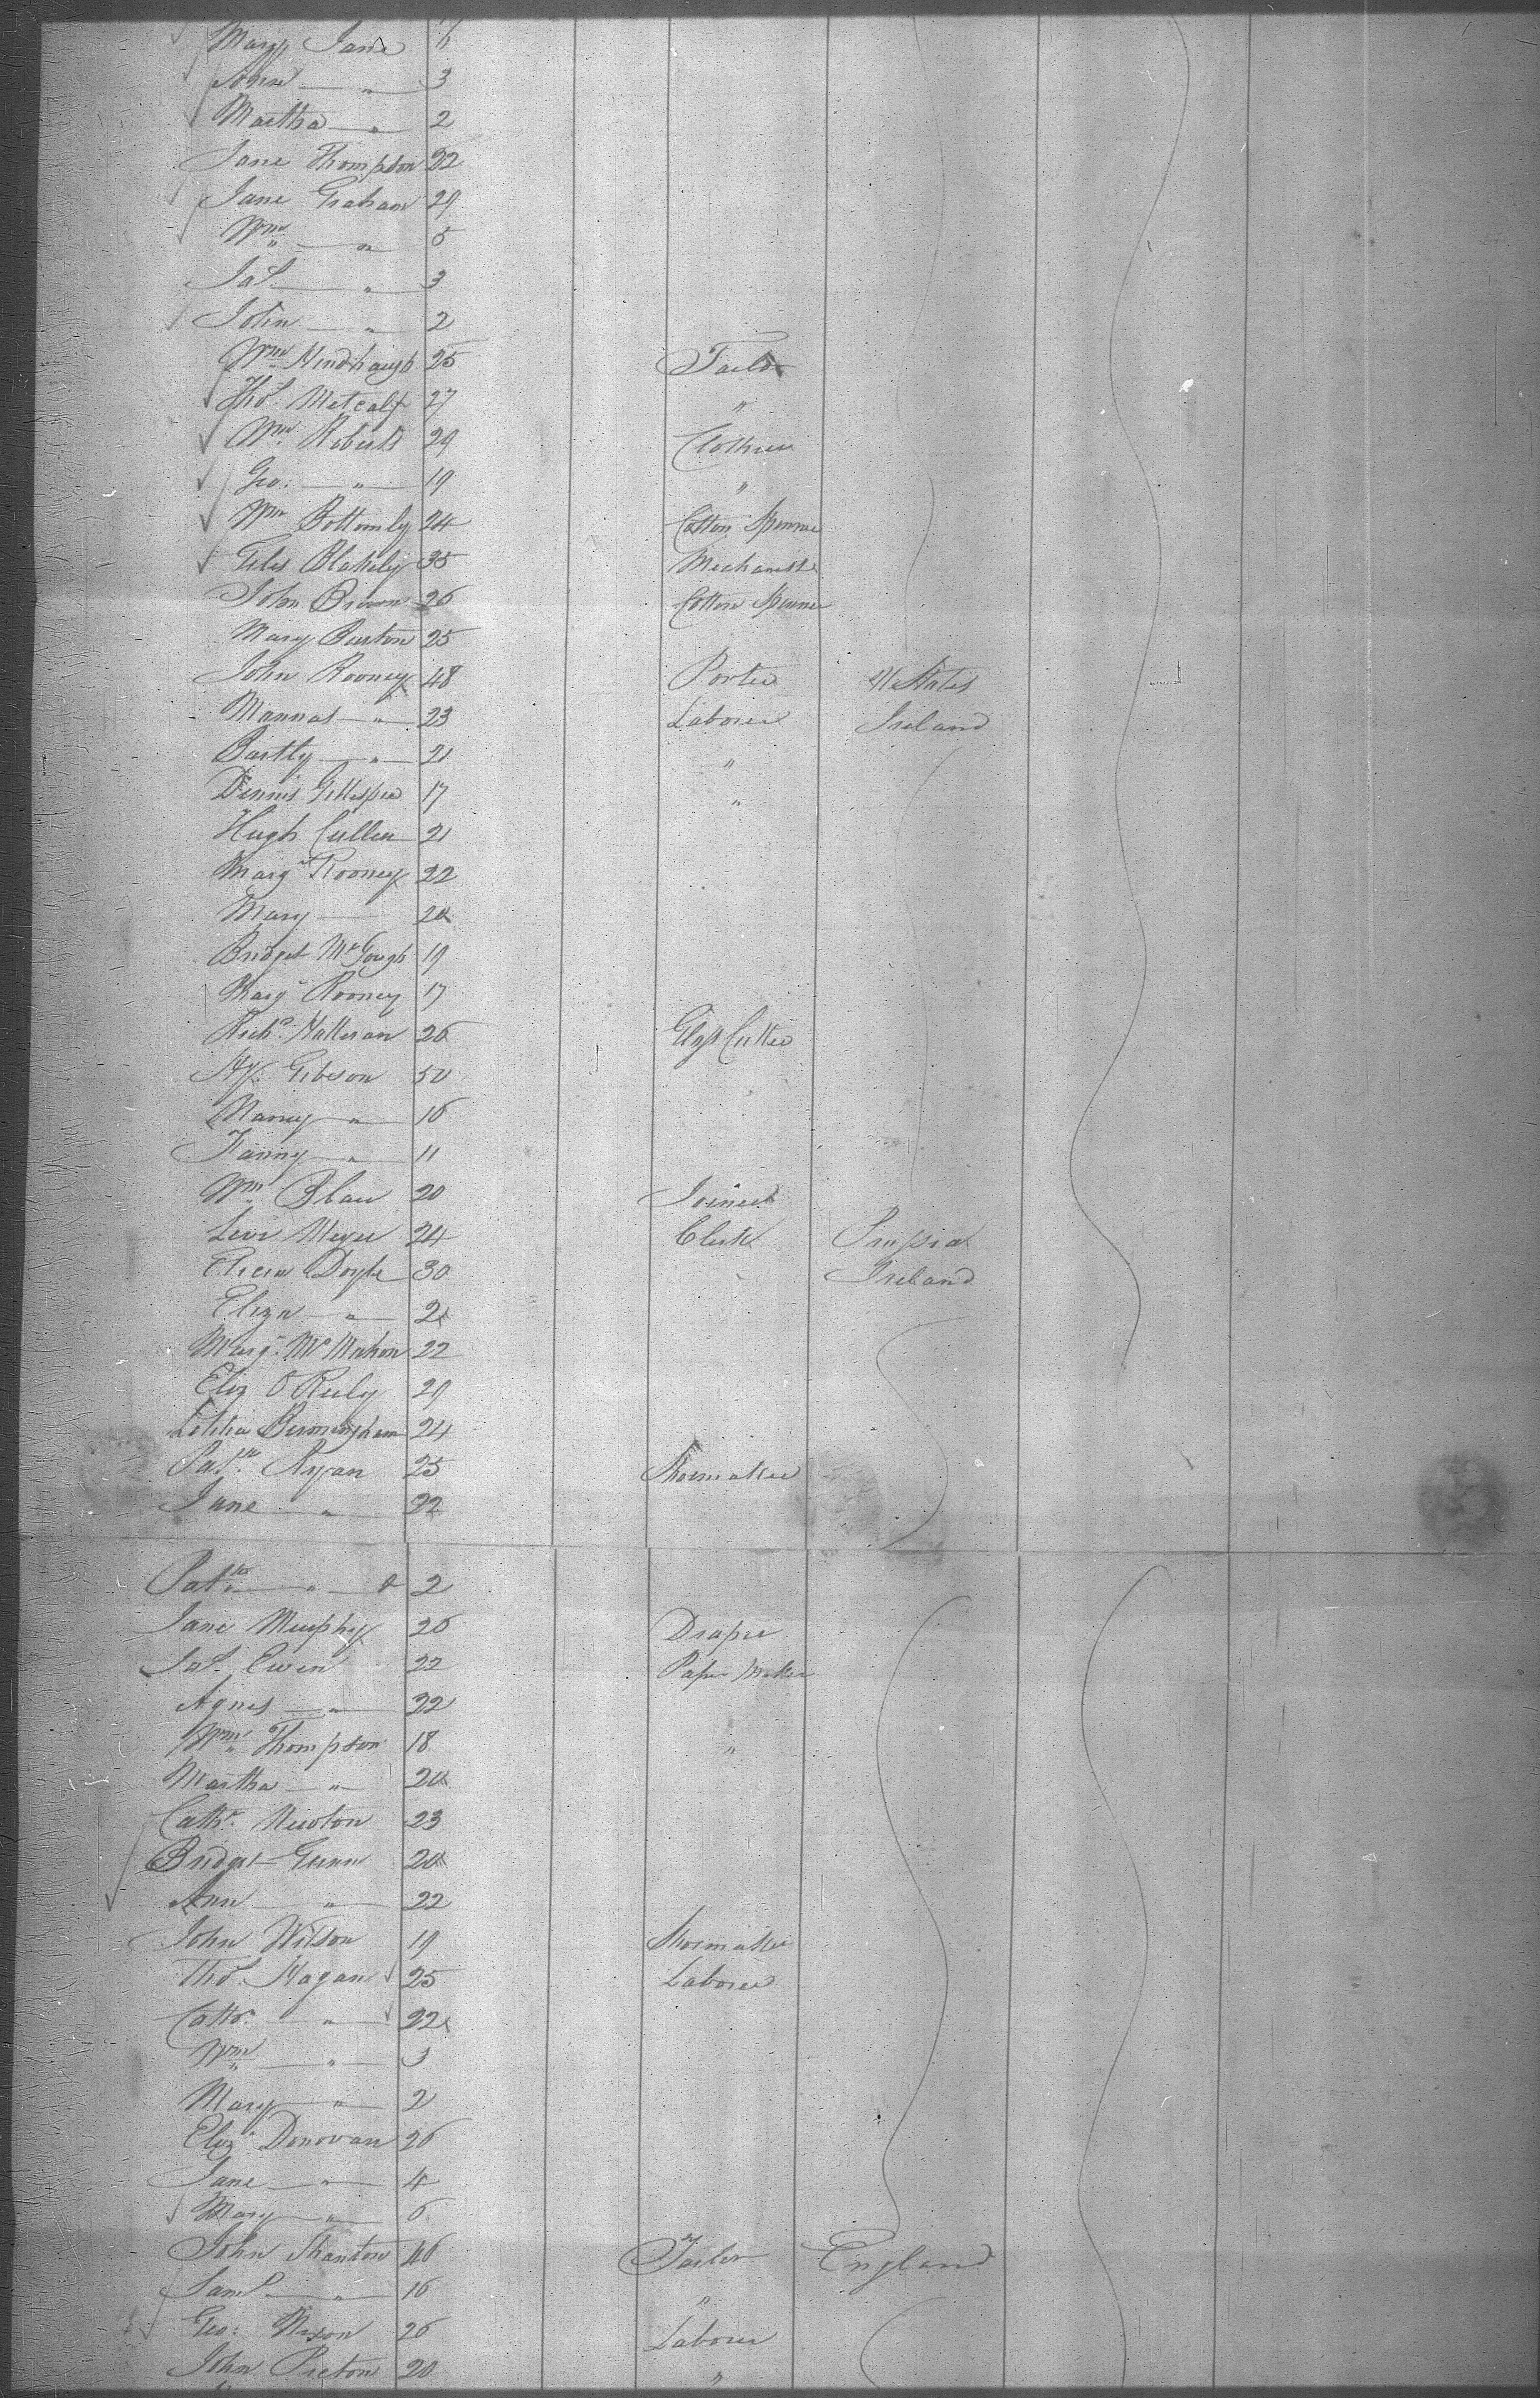 Mary Jane 6
John — " — 3
Martha — " 2
Jane Thompson 22
Jane Graham 29
Wm — " 5
Jas — " 3
John — " 2
Wm Hindhaugh 25 Tailor
Thos Metcalf 27 "
Wm Roberts 29 Clothier
Geo: — " — 19 "
Wm Bottomly 24 Cotton Spinner
Giles Blakely 35 Mechanist
John Brown 26 Cotton Spinner
Mary Burton 25
John Rooney 48 Porter U States
Mannas — " — 23 Laborer Ireland
Bartly — " — 21 "
Dennis Gillespie 17 "
Hugh Cullen 21
Margt Rooney 22
Mary — 20
Bridget McGough 19
Margt Rooney 17
Richd Halleran 26 Glass Cutter
Hy. Gibson 50
Nancy — " — 16
Fanny — " — 11
Wm Blau 20 Joiner
Levi Meyer 24 Clerk Prussia
Elicia Doyle 30 Ireland
Eliza — " — 21
Margt McMahon 22
Eliz O Reily 29
Letitia Bermingham 24
Patk Ryan 25 Shoemaker
Jane " 32
Patk — " — 2
Jane Murphy 26 Draper
Jas. Ewen 22 Paper Maker
Agnes — " — 22
Wm Thompson 18 "
Martha — " — 20
Cathr. Newton 23
Bridget Gunn 20
Ann — " — 22
John Wilson 19 Shoemaker
Thos. Hagan 25 Laborer
Cathr. — " — 22
Wm — " — 3
Mary — " — 2
Eliz Donovan 26
Jane — " — 4
Mary — " — 6
John Stanton 46 Tailor England
Saml — " — 16 "
Geo: Nixon 26 Laborer
John Picton 20 "